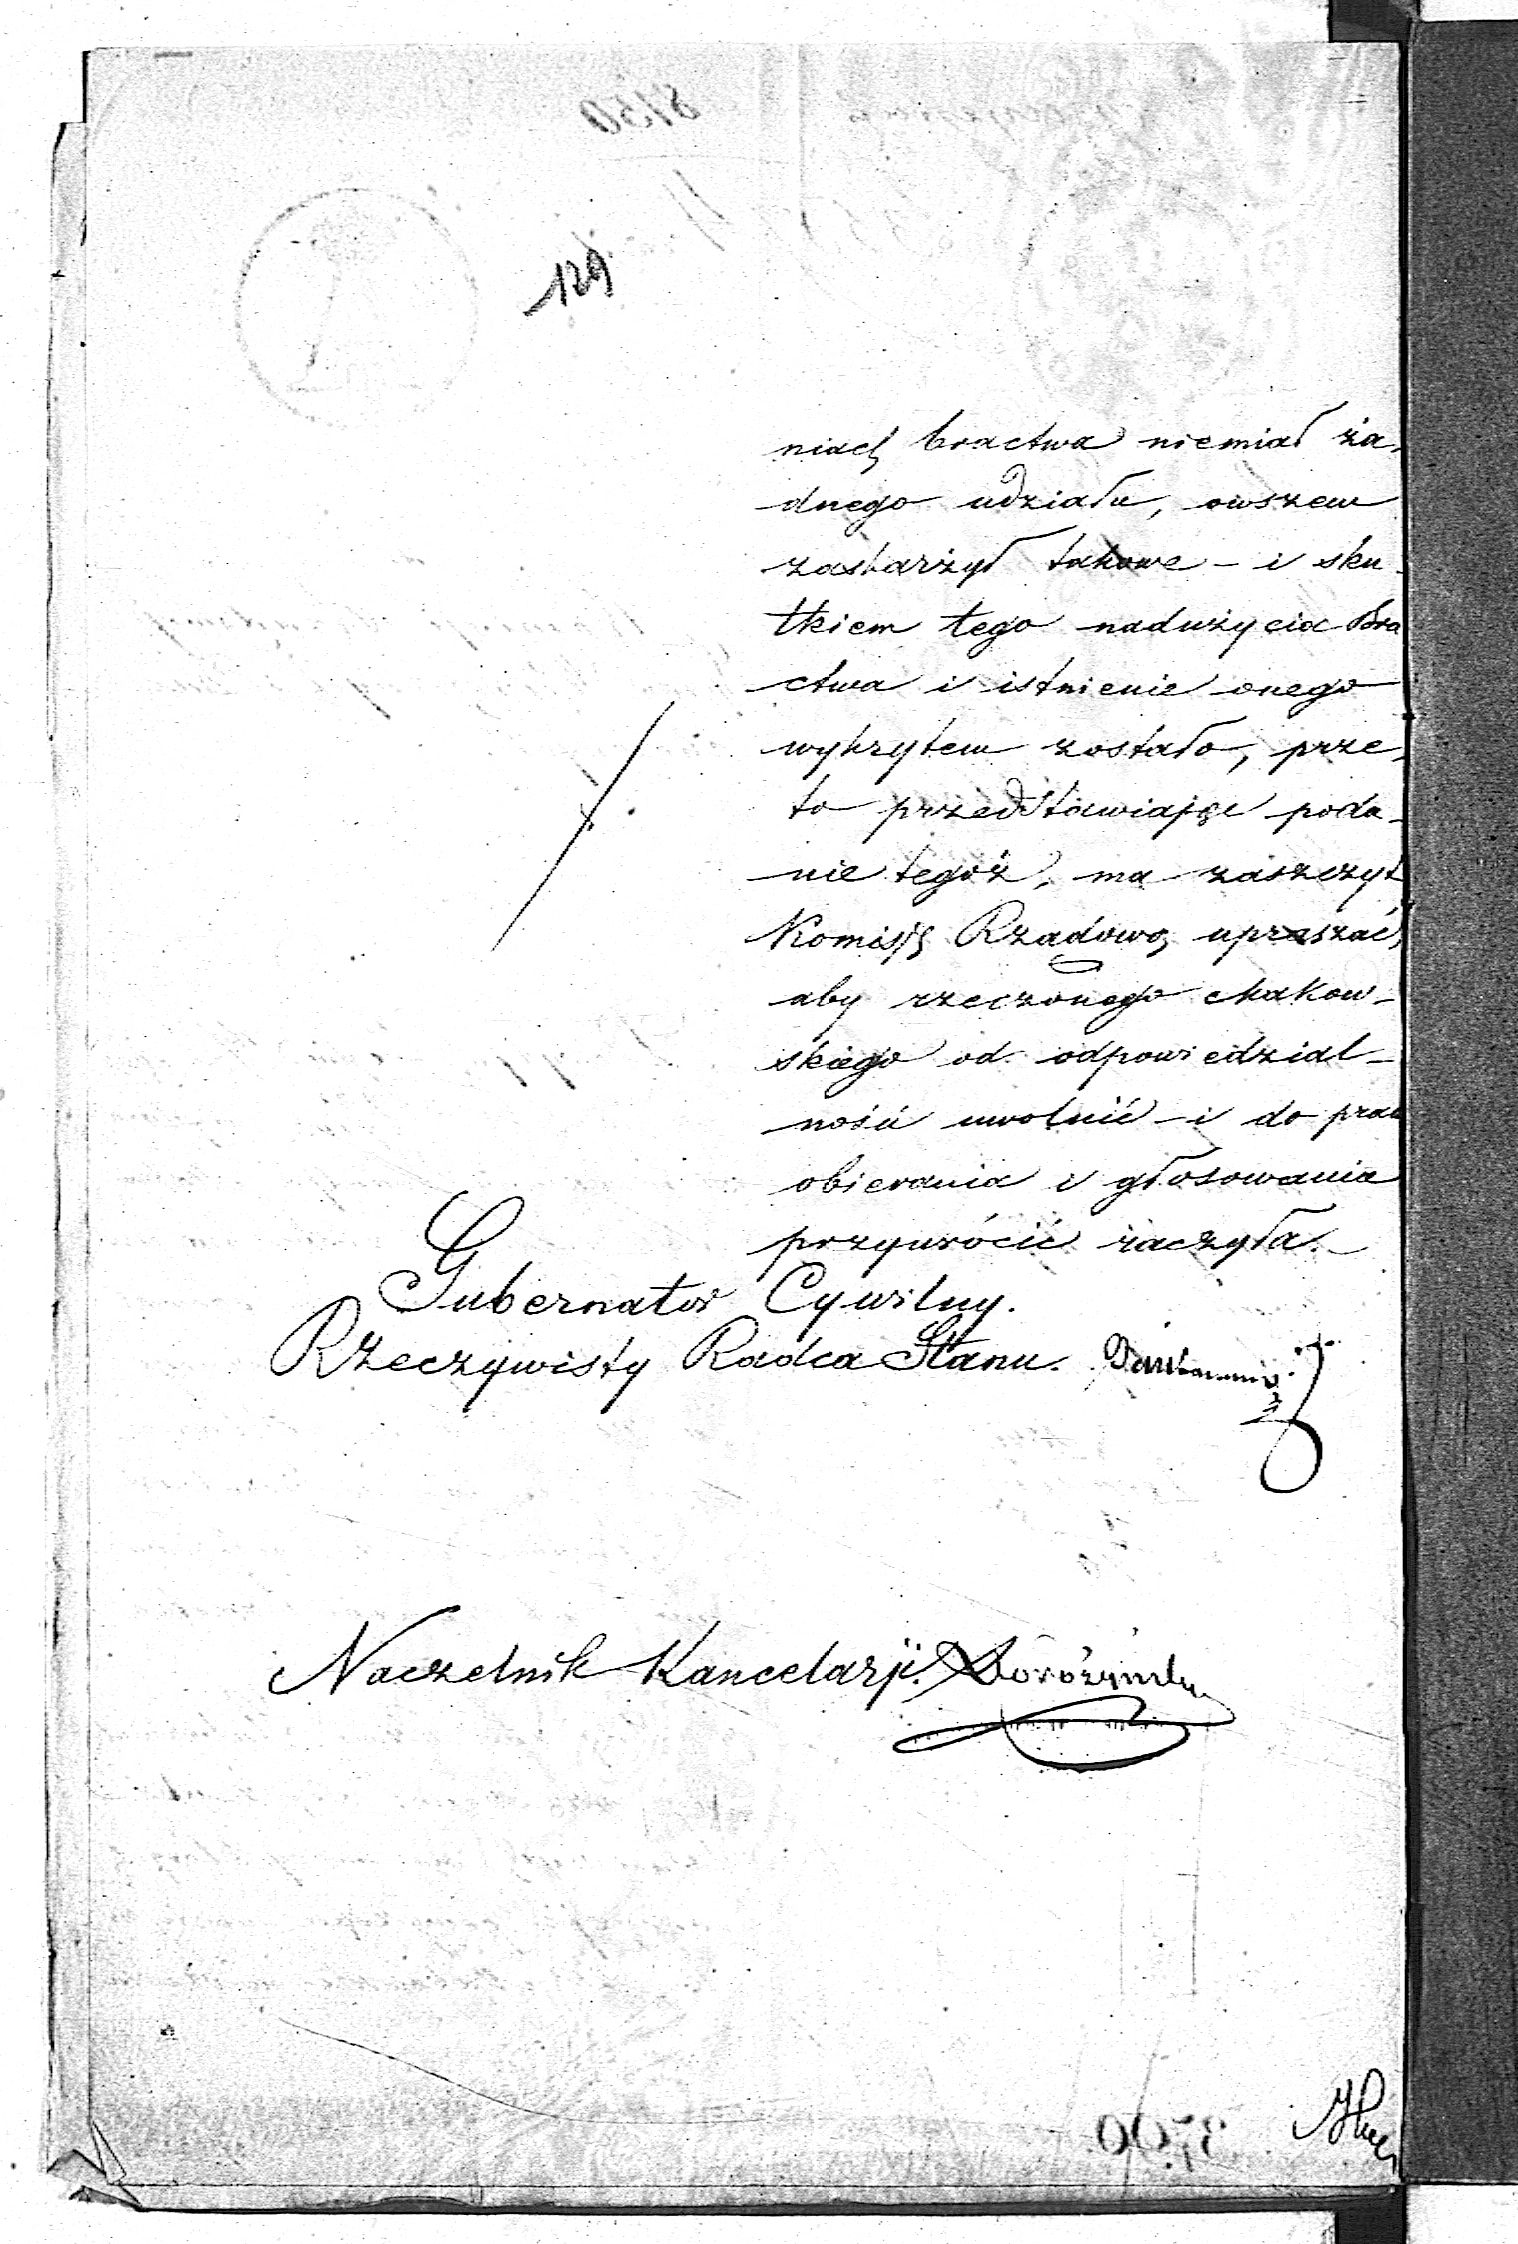 129
niach bractwa niemiał ża-
dnego udziału, owszem
zaskarżył takowe - i sku-
tkiem tego nadużycia Bra
ctwa i istnienie onego
wykrytem zostało, prze-
to przedstawiając poda-
nie tegoż, ma zaszczyt
Komisję Rządową upraszać,
aby rzeczonego Makow-
skiego od odpowiedzial-
ności uwolnić - i do praw
obierania i głosowania
przywrócić raczyła.
Gubernator Cywilny.
Rzeczywisty Radca Stanu.
Naczelnik Kancelarji.